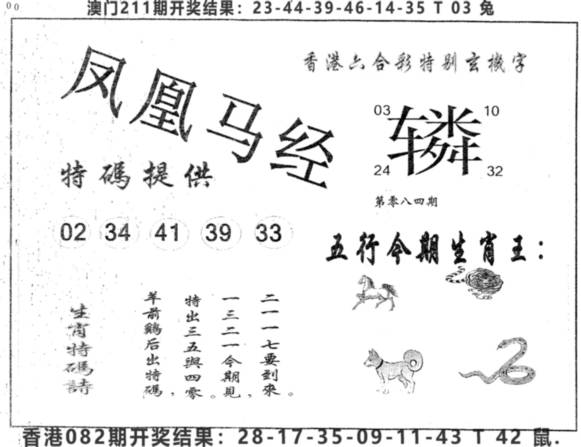 00
澳门211期开奖结果：23-44-39-46-14-35 T 03 兔
香港六合彩特别玄機字
凤凰马经
03
10
辚
24
32
特碼提供
第零八四期
02 34 41 39 33
五行今期生肖王：
二一一七要到來
一三二一今期見。
特出三五與四零。
羊前鷄后出特碼，
生肖特碼詩
香港082期开奖结果：28-17-35-09-11-43 T 42 鼠.